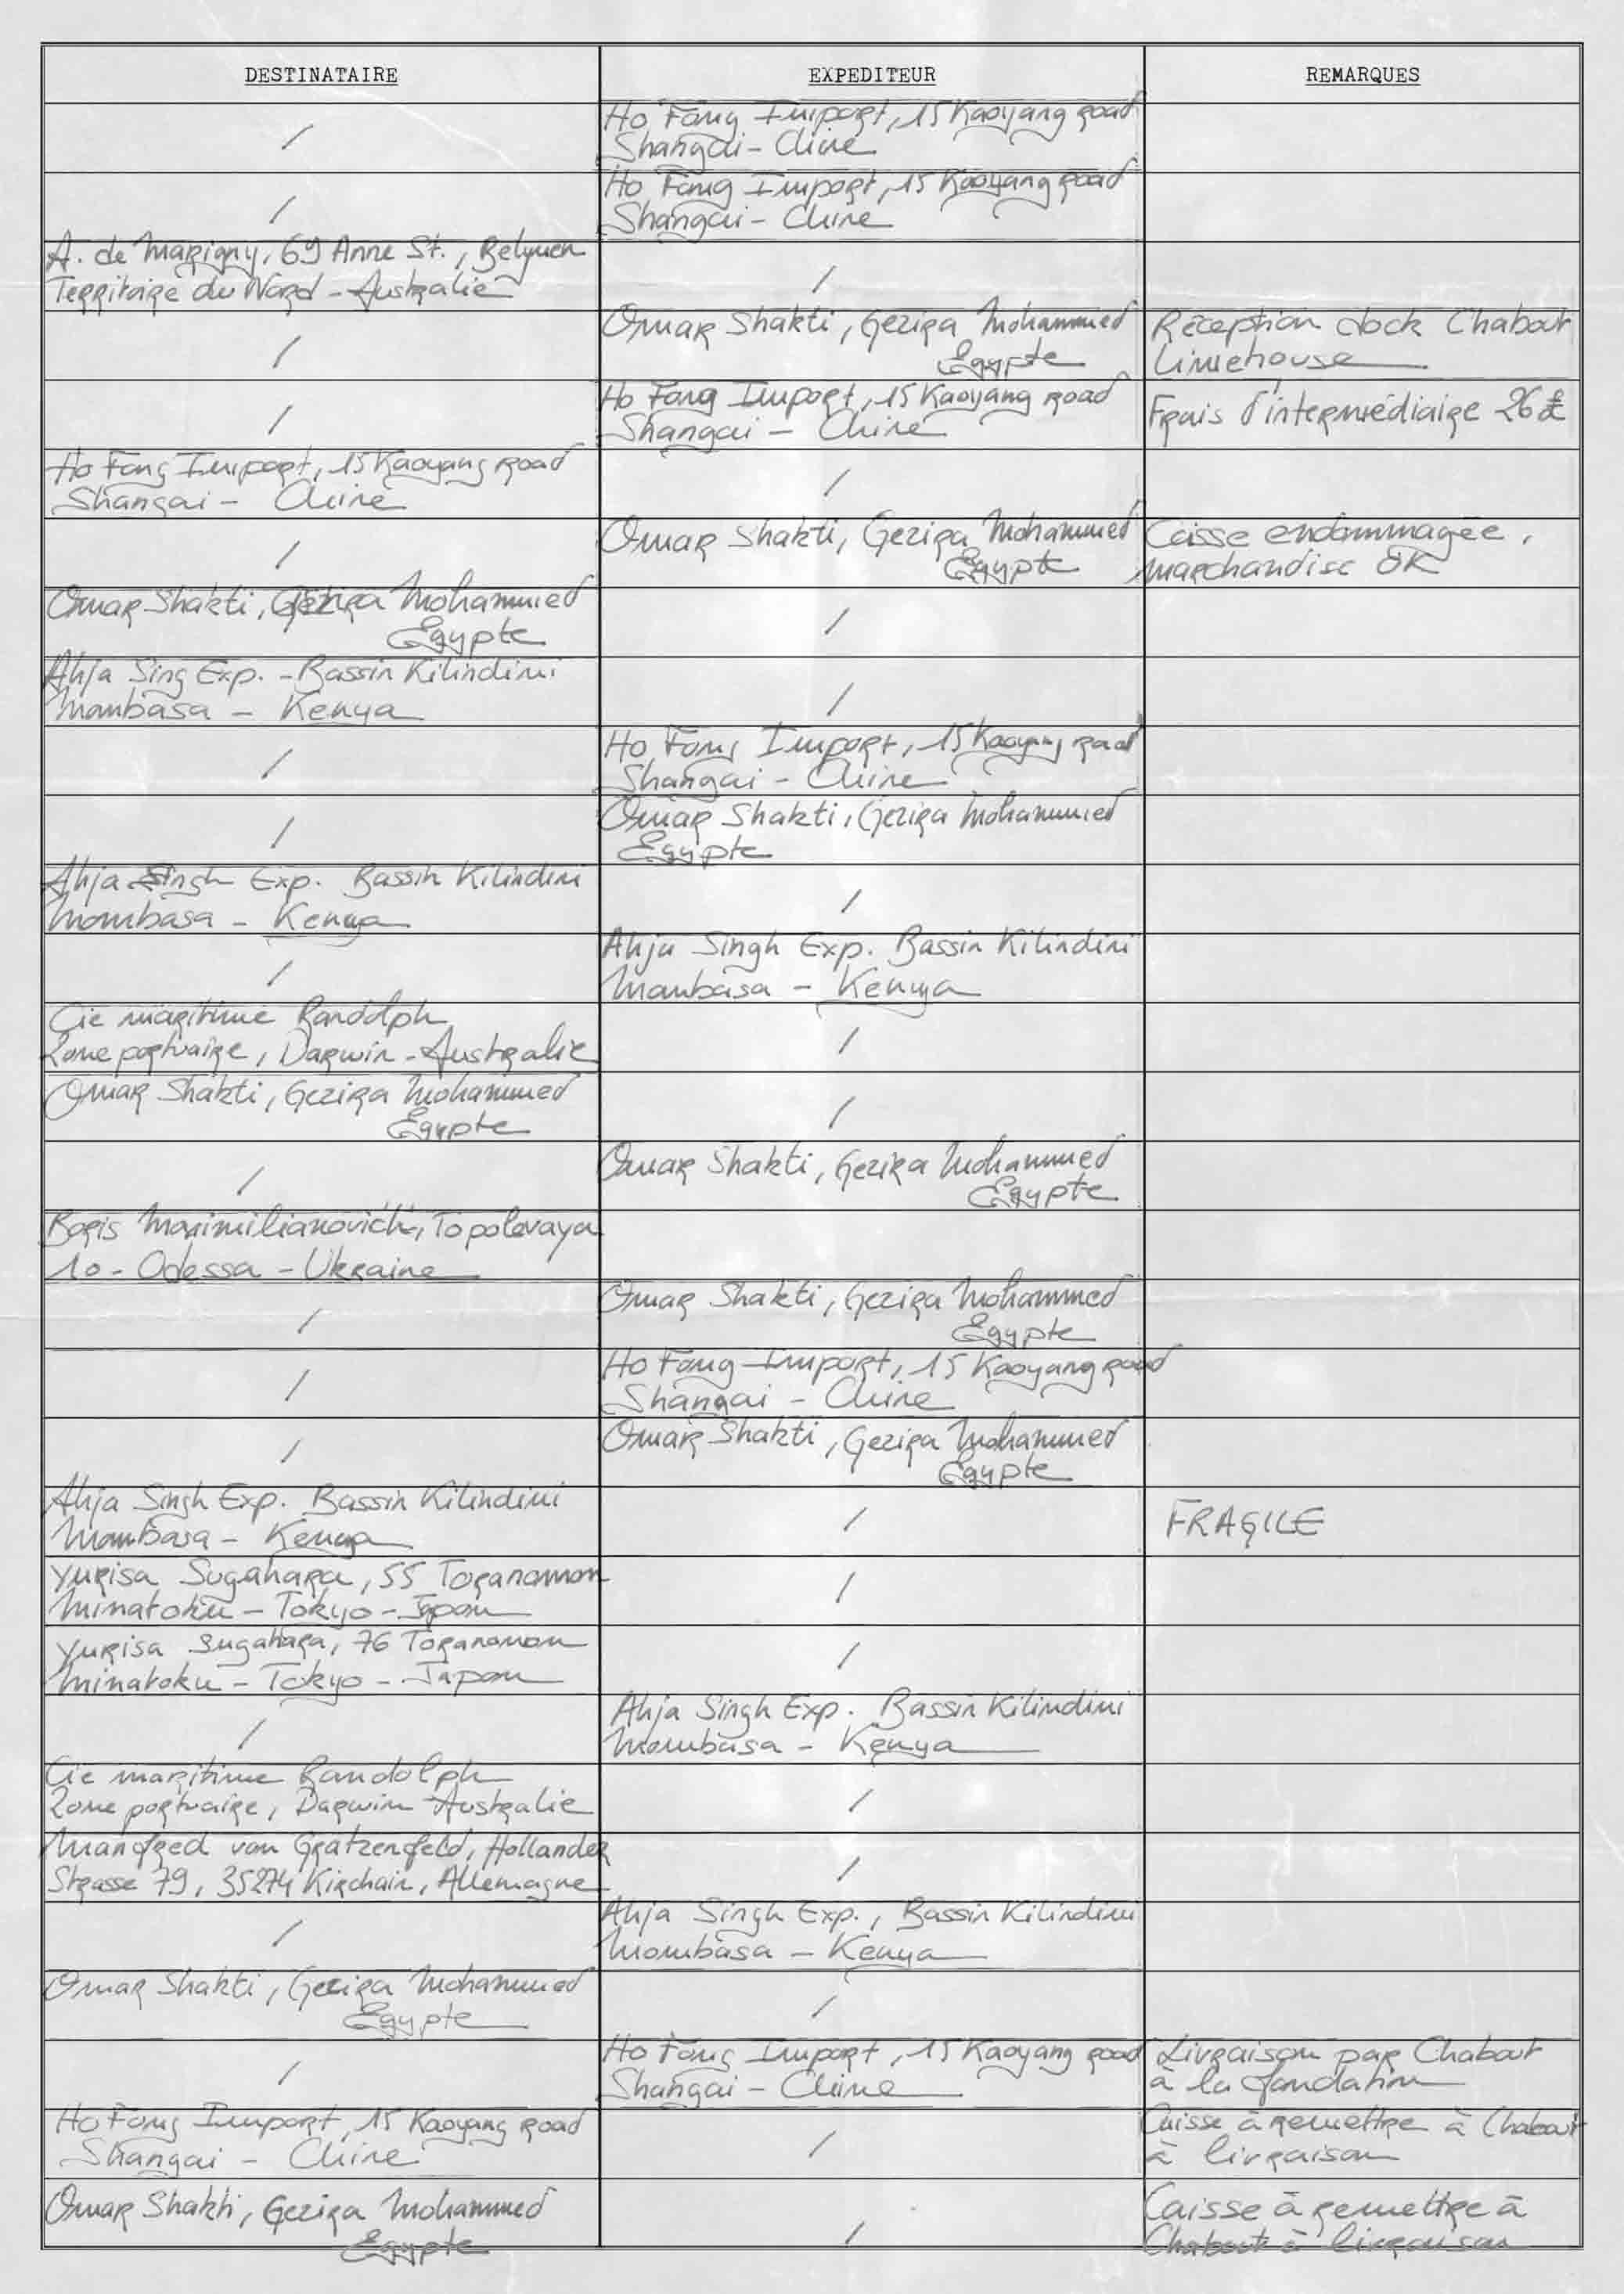 DESTINATAIRE EXPEDITEUR REMARQUES
/ Ho Fong Import, 15 Kaoyang Road
Shangai - Chine
/ Ho Fong Import, 15 Kaoyang Road
Shangai - Chine
A. de Marigny, 69 Anne St., Belyuen
Territoire du Nord - Australie /
/ Omar Shakti, Gezira Mohammed
Egypte
Réception dock Chabout
Limehouse
/ Ho Fong Import, 15 Kaoyang road
Shangai - Chine
Frais d'intermédiaire 26£
Ho Fong Import, 15 Kaoyang road
Shangai - Chine /
/ Omar Shakti, Gezira Mohammed
Egypte
Caisse endommagée,
marchandise OK
Omar Shakti, Gezira Mohammed
Egypte /
Ahja Sing Exp. - Bassin Kilindini
Mombasa - Kenya /
/ Ho Fong Import, 15 Kaoyang road
Shangai - Chine
/ Omar Shakti, Gezira Mohammed
Egypte
Ahja Singh Exp. Bassin Kilindini
Mombasa - Kenya /
/ Ahja Singh Exp. Bassin Kilindini
Mombasa - Kenya
Cie maritime Randolph
Zone portuaire, Darwin - Australie /
Omar Shakti, Gezira Mohammed
Egypte /
/ Omar Shakti, Gezira Mohammed
Egypte
Boris Maximilianovich, Topolevaya
10 - Odessa - Ukraine
/ Omar Shakti, Gezira Mohammed
Egypte
/ Ho Fong Import, 15 Kaoyang road
Shangai - Chine
/ Omar Shakti, Gezira Mohammed
Egypte
Ahja Singh Exp. Bassin Kilindini
Mombasa - Kenya / FRAGILE
Yurisa Sugahara, 55 Toranomon
Minatoku - Tokyo - Japon /
Yurisa Sugahara, 76 Toranomon
Minatoku - Tokyo - Japon /
/ Ahja Singh Exp. Bassin Kilindini
Mombasa - Kenya
Cie maritime Randolph
Zone portuaire, Darwin Australie /
Manfred von Gratzenfeld, Hollander
Strasse 79, 35274 Kirchain, Allemagne /
/ Ahja Singh Exp., Bassin Kilindini
Mombasa - Kenya
Omar Shakti, Gezira Mohammed
Egypte /
/ Ho Fong Import, 15 Kaoyang road
Shangai - Chine
Livraison par Chabout
à la fondation
Ho Fong Import, 15 Kaoyang road
Shangai - Chine /
Caisse à remettre à Chabout
à livraison
Omar Shakti, Gezira Mohammed
Egypte /
Caisse à remettre à
Chabout à livraison